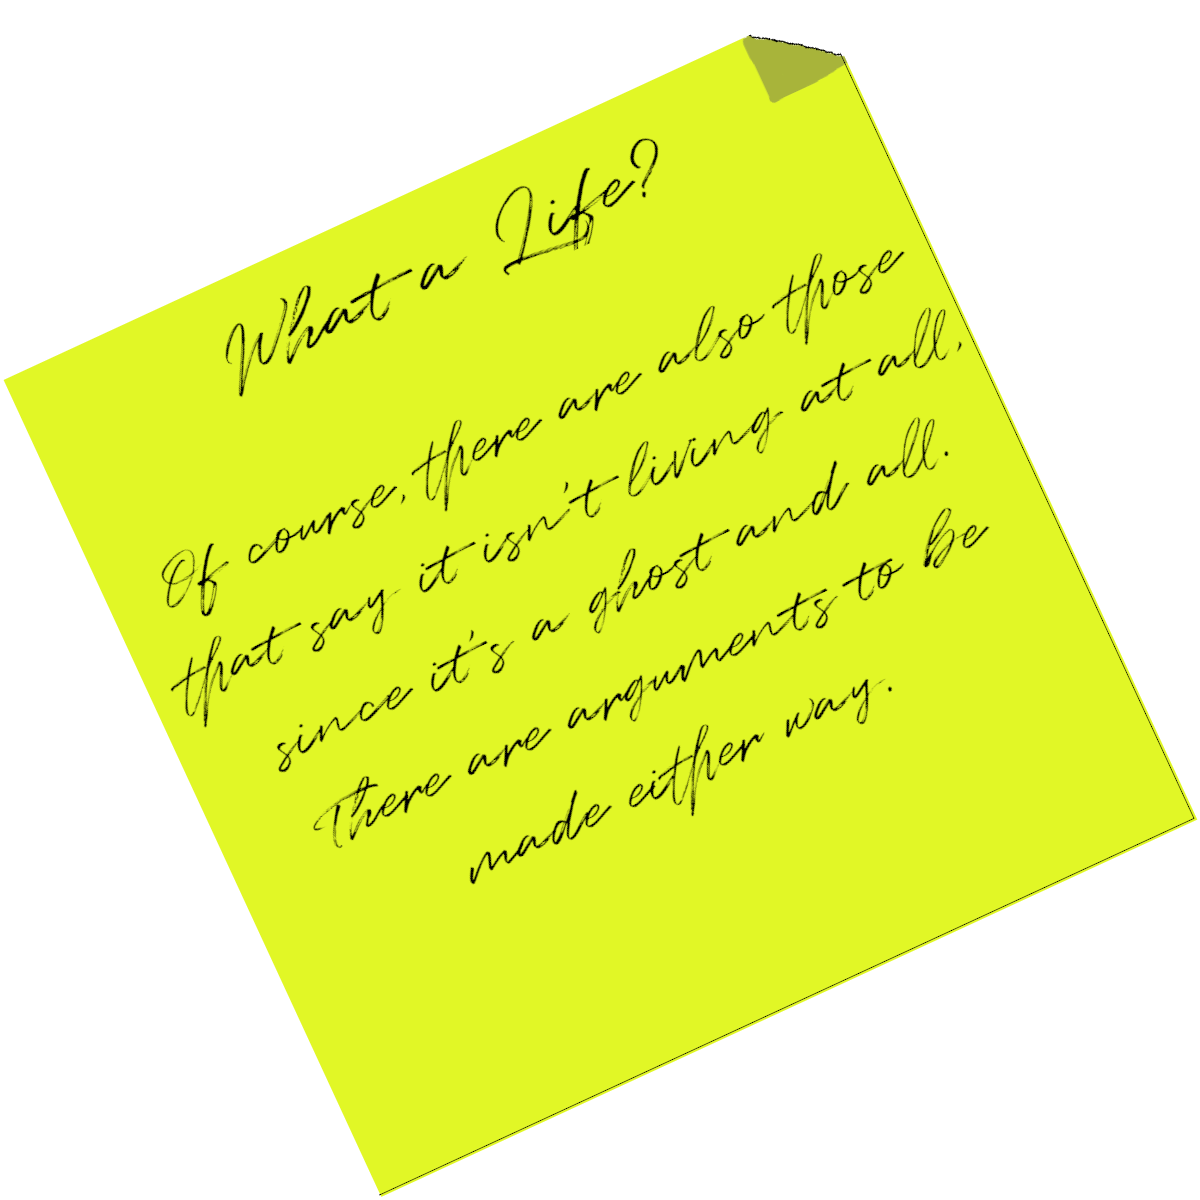 What a Life?
Of course, there are also those
that say it isn't living at all,
since it's a ghost and all.
There are arguments to be
made either way.